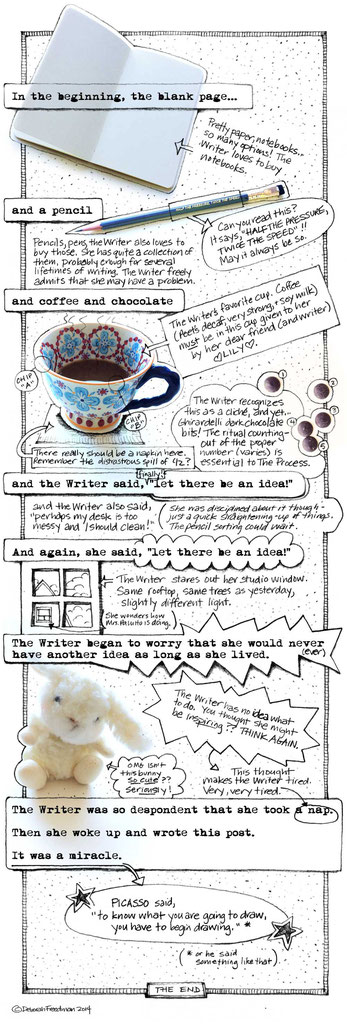 In the beginning, the blank page...
Pretty paper, notebooks...
so many options! The
Writer loves to buy
notebooks.
and a pencil
Can you read this?
It says, "HALF THE PRESSURE,
TWICE THE SPEED"!!
May it always be so.
Pencils, pens, the Writer also loves to
buy those. She has quite a collection of
them, probably enough for several
lifetimes of writing. The Writer freely
admits that she may have a problem.
and coffee and chocolate
The Writer's favorite cup. Coffee
(Peets decaf, very strong, + soy milk)
must be in this cup given to her
by her dear friend (and writer)
♡LILY♡.
CHIP
"A"
CHIP
"B"
1
2
3
4
5
The Writer recognizes
this as a cliché, and yet...
Ghirardelli dark chocolate
bits! The ritual counting-
out of the proper
number (varies) is
essential to The Process.
There really should be a napkin here.
Remember the disastrous spill of '92?
finally!
and the Writer said, "let there be an idea!"
and the Writer also said,
"perhaps my desk is too
messy and I should clean!"
She was disciplined about it though-
just a quick straightening-up of things.
The pencil sorting could wait.
And again, she said, "let there be an idea!"
The Writer stares out her studio window.
Same rooftop, same trees as yesterday,
slightly different light.
She wonders how
is doing.
The Writer began to worry that she would never
have another idea as long as she lived.
(ever)
The Writer has no idea what
to do. You thought she might
be inspiring?? THINK AGAIN.
OMG isn't
this bunny
so cute??
Seriously!
This thought
makes the Writer tired.
Very, very tired.
The Writer was so despondent that she took a nap.
Then she woke up and wrote this post.
It was a miracle.
PICASSO said,
"to know what you are going to draw,
you have to begin drawing." *
(* or he said
something like that)
THE END
©Deborah Freedman 2014